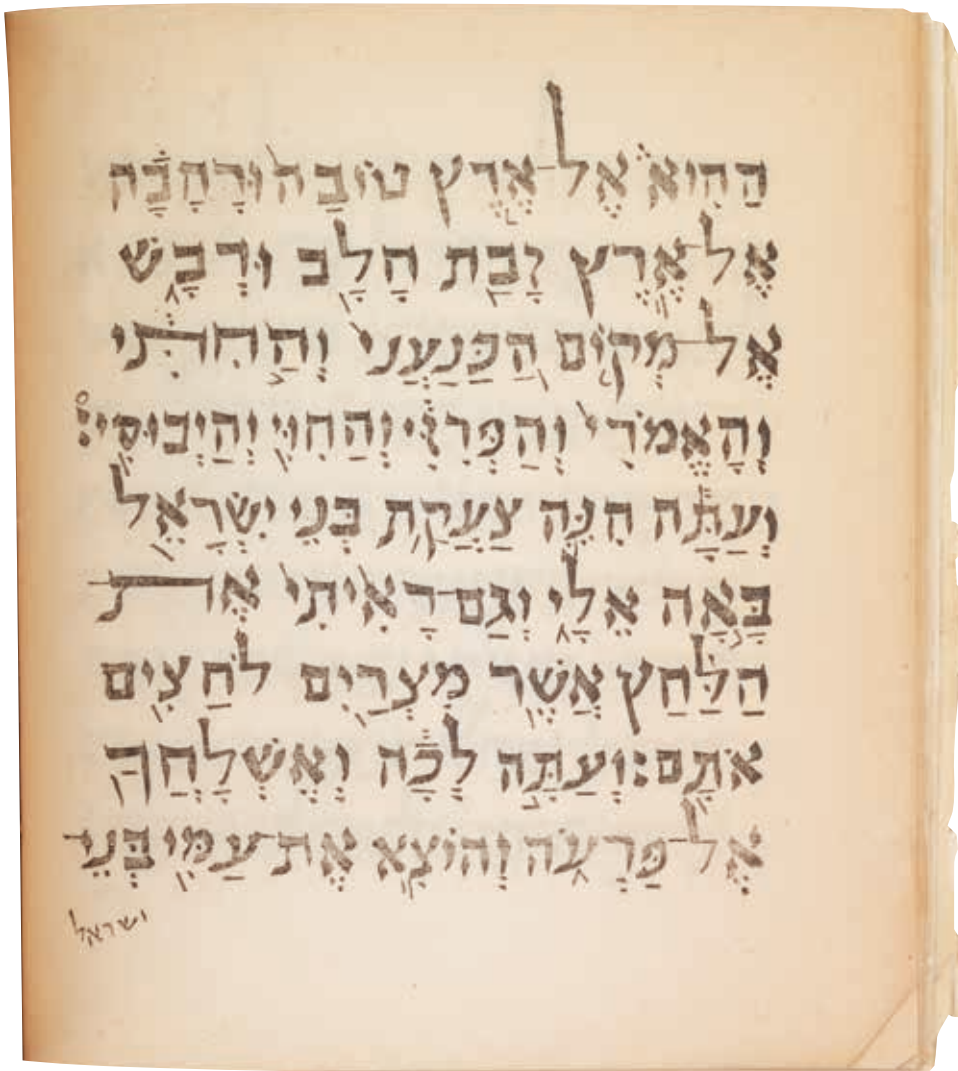 הַהִוא֒ אֶל־אֶ֤רֶץ טוֹבָה֙ וּרְחָבָ֔ה
אֶל־אֶ֛רֶץ זָבַ֥ת חָלָ֖ב וּדְבָ֑שׁ
אֶל־מְק֤וֹם הַֽכְּנַעֲנִי֙ וְהַ֣חִתִּ֔י
וְהָֽאֱמֹרִי֙ וְהַפְּרִזִּ֔י וְהַחִוִּ֖י וְהַיְבוּסִֽי׃
וְעַתָּ֕ה הִנֵּ֛ה צַעֲקַ֥ת בְּנֵי יִשְׂרָאֵ֖ל
בָּ֣אָה אֵלָ֑י וְגַם־רָאִ֙יתִי֙ אֶת
הַלַּ֔חַץ אֲשֶׁ֥ר מִצְרַ֖יִם לֹחֲצִ֥ים
אֹתָֽם׃ וְעַתָּ֣ה לְכָ֔ה וְאֶשְׁלָחֲךָ֖
אֶל־פַּרְעֹ֑ה וְהוֹצֵ֛א אֶת־עַמִּ֥י בְנֵי־
ישראל